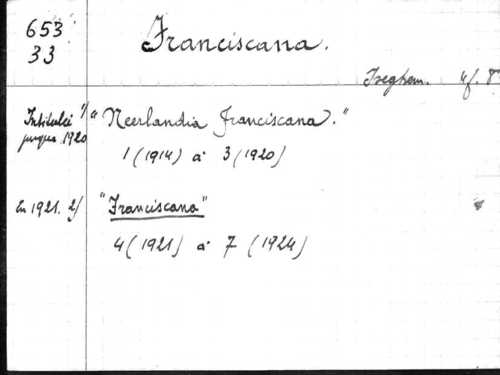 653
33
Franciscana.
Iseghem. in f. 8°
Intitulé 1/ "Neerlandia Franciscana."
jusque 1920
1 (1914) à 3 (1920)
En 1921. 2/ "Franciscana"
4 (1921) à 7 (1924)